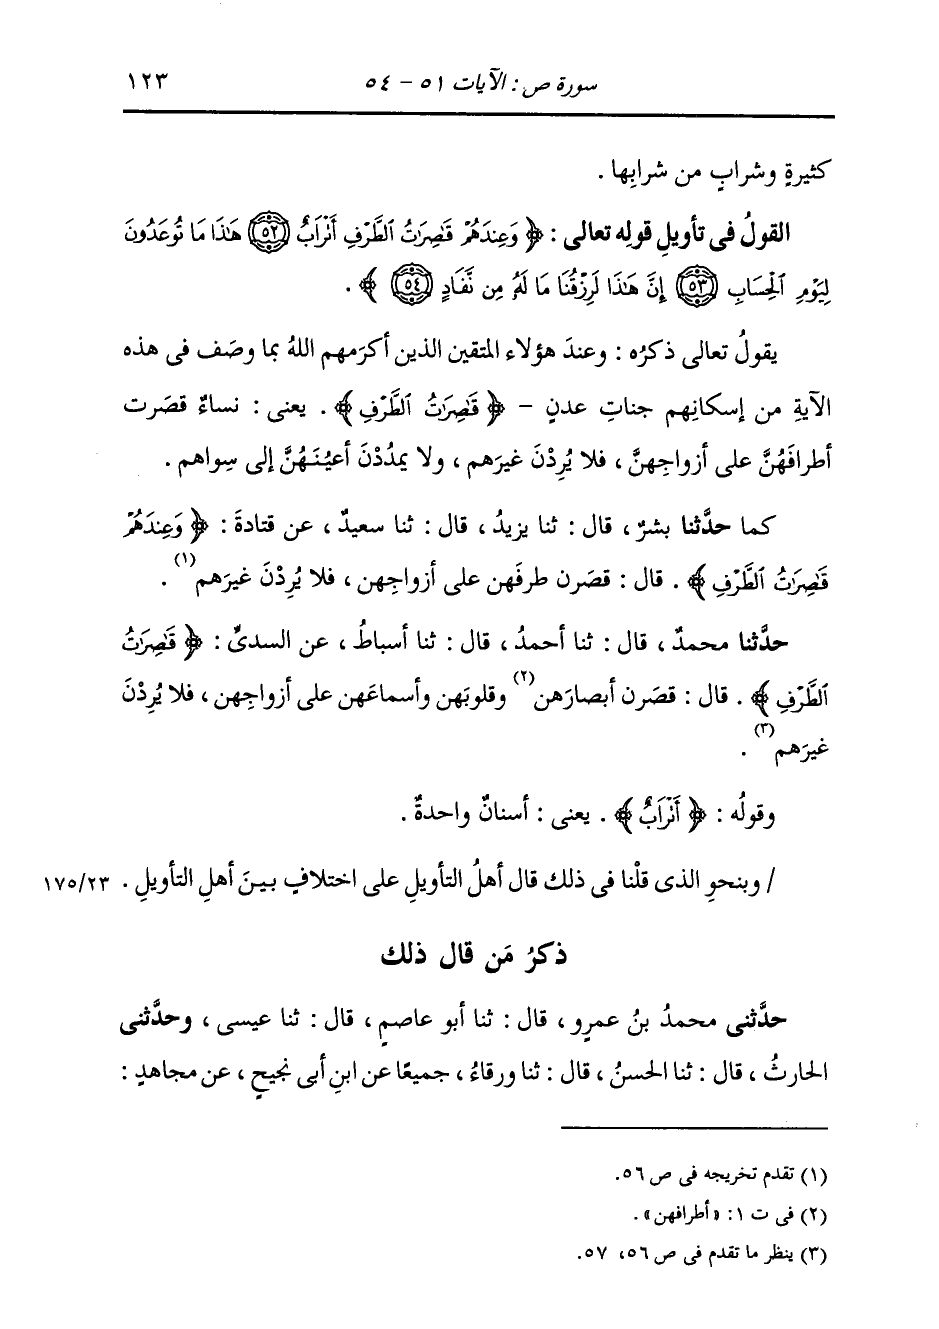 سورة ص : الآيات ٥١ - ٥٤ ١٢٣
كثيرةٍ وشرابٍ من شرابِها .
القولُ فى تأويلِ قولِه تعالى : ﴿ وَعِندَهُمْ قَٰصِرَٰتُ ٱلطَّرْفِ أَنْرَابٌ ۝٥٢ هَٰذَا مَا تُوعَدُونَ
لِيَوْمِ ٱلْحِسَابِ ۝٥٣ إِنَّ هَٰذَا لَرِزْقُنَا مَا لَهُۥ مِن نَّفَادٍ ۝٥٤ ﴾ .
يقولُ تعالى ذكرُه : وعندَ هؤلاء المتقين الذين أكرَمهم اللهُ بما وصَف فى هذه
الآيةِ من إسكانِهم جناتِ عدنٍ - ﴿ قَٰصِرَٰتُ ٱلطَّرْفِ ﴾ . يعنى : نساءٌ قصَرت
أطرافَهُنَّ على أزواجِهنَّ ، فلا يُرِدْنَ غيرَهم ، ولا يمدُدْنَ أعيُنَهُنَّ إلى سِواهم .
كما حدَّثنا بشرٌ ، قال : ثنا يزيدُ ، قال : ثنا سعيدٌ ، عن قتادةَ : ﴿ وَعِندَهُمْ
قَٰصِرَٰتُ ٱلطَّرْفِ ﴾ . قال : قصَرن طرفَهن على أزواجِهن ، فلا يُرِدْنَ غيرَهم (١) .
حدَّثنا محمدٌ ، قال : ثنا أحمدُ ، قال : ثنا أسباطُ ، عن السدىِّ : ﴿ قَٰصِرَٰتُ
ٱلطَّرْفِ ﴾ . قال : قصَرن أبصارَهن (٢) وقلوبَهن وأسماعَهن على أزواجِهن ، فلا يُرِدْنَ
غيرَهم (٣) .
وقولُه : ﴿ أَنْرَابٌ ﴾ . يعنى : أسنانٌ واحدةٌ .
/ وبنحوِ الذى قلْنا فى ذلك قال أهلُ التأويلِ على اختلافٍ بينَ أهلِ التأويلِ . ١٧٥/٢٣
ذكرُ مَن قال ذلك
حدَّثنى محمدُ بنُ عمرٍو ، قال : ثنا أبو عاصمٍ ، قال : ثنا عيسى ، وحدَّثنى
الحارثُ ، قال : ثنا الحسنُ ، قال : ثنا ورقاءُ ، جميعًا عن ابنِ أبى نجيحٍ ، عن مجاهدٍ :
(١) تقدم تخريجه فى ص ٥٦.
(٢) فى ت ١: «أطرافهن» .
(٣) ينظر ما تقدم فى ص ٥٦، ٥٧.